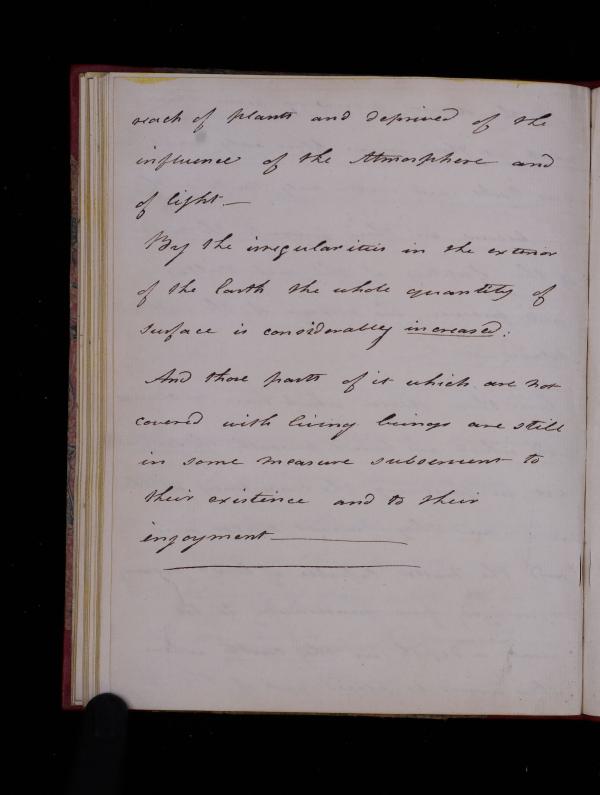 reach of plants and deprived of the
influence of the Atmosphere and
of light —
By the irregularities in the exterior
of the Earth the whole quantity of
surface is considerably increased:
And those parts of it which are not
covered with living beings are still
in some measure subservient to
their existence and to their
enjoyment —